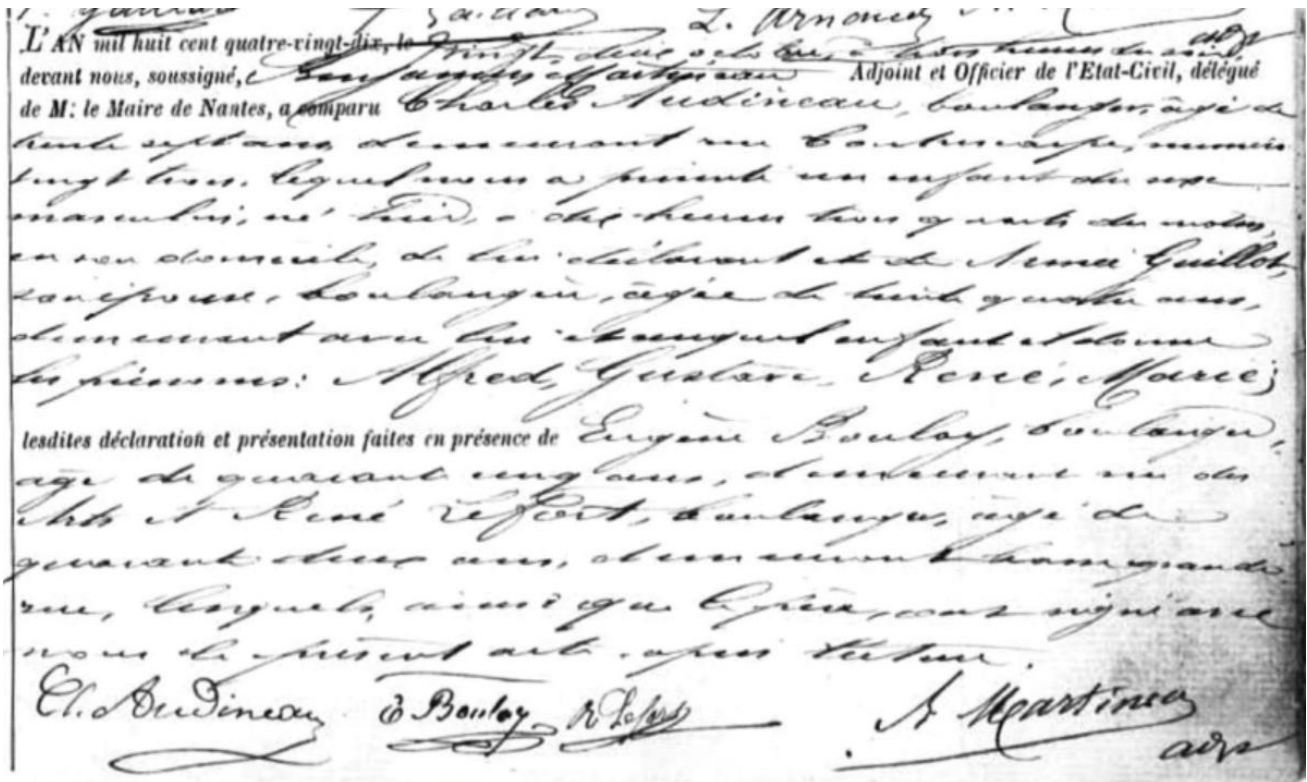 L. Arnoud
L'AN mil huit cent quatre-vingt-dix, le vingt-deux octobre, à trois heures du soir
devant nous, soussigné, Martineau Adjoint et Officier de l'Etat-Civil, délégué
de M. le Maire de Nantes, a comparu Charles Audineau, boulanger, âgé de
trente sept ans, demeurant rue Contrescarpe, numéro
vingt trois, lequel nous a présenté un enfant du sexe
masculin, né hier, à dix heures trois quarts du matin,
en son domicile, de lui déclarant et de Guillot,
son épouse, boulangère, âgée de trente quatre ans,
demeurant avec lui et auquel enfant il donne
les prénoms: Alfred, Gustave, René, Marie;
lesdites déclaration et présentation faites en présence de Eugène Boulay, boulanger,
âgé de quarante cinq ans, demeurant rue des
Arts et René Lefort, boulanger, âgé de
quarante deux ans, demeurant grande
rue, lesquels, ainsi que le père, ont signé avec
nous le présent acte, après lecture.
Ch. Audineau E Boulay R Lefort A Martineau
adjt